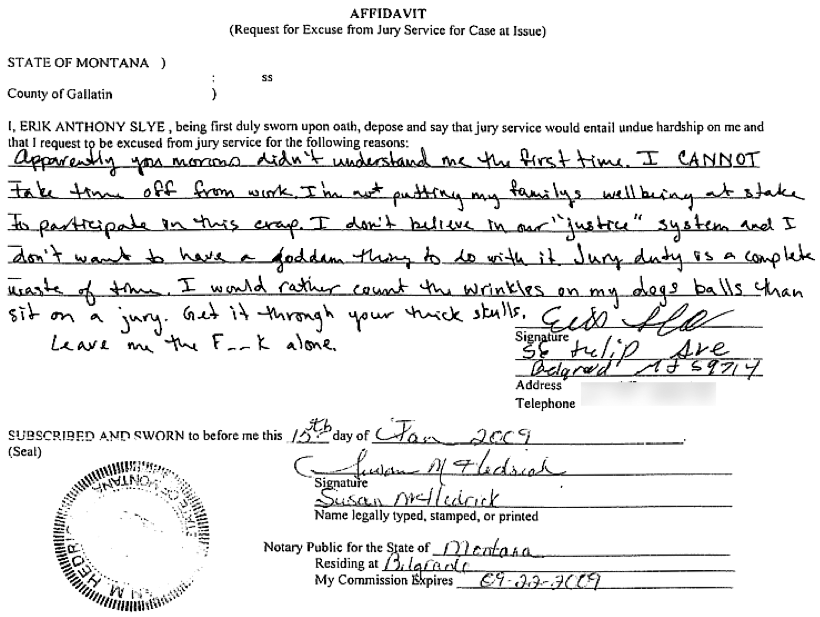 AFFIDAVIT
(Request for Excuse from Jury Service for Case at Issue)
STATE OF MONTANA )
: ss
County of Gallatin )
I, ERIK ANTHONY SLYE , being first duly sworn upon oath, depose and say that jury service would entail undue hardship on me and
that I request to be excused from jury service for the following reasons:
Apparently you morons didn't understand me the first time. I CANNOT
take time off from work. I'm not putting my familys wellbeing at stake
to participate in this crap. I don't believe in our "justice" system and I
don't want to have a goddam thing to do with it. Jury duty is a complete
waste of time. I would rather count the wrinkles on my dogs balls than
sit on a jury. Get it through your thick skulls.
Leave me the F__k alone.
Signature
Tulip Ave
Belgrade MT 59714
Address
Telephone
SUBSCRIBED AND SWORN to before me this 15th day of Jan 2009
(Seal)
Susan M Hedrick
Signature
Susan M Hedrick
Name legally typed, stamped, or printed
Notary Public for the State of Montana
Residing at Belgrade
My Commission Expires 09-22-2009